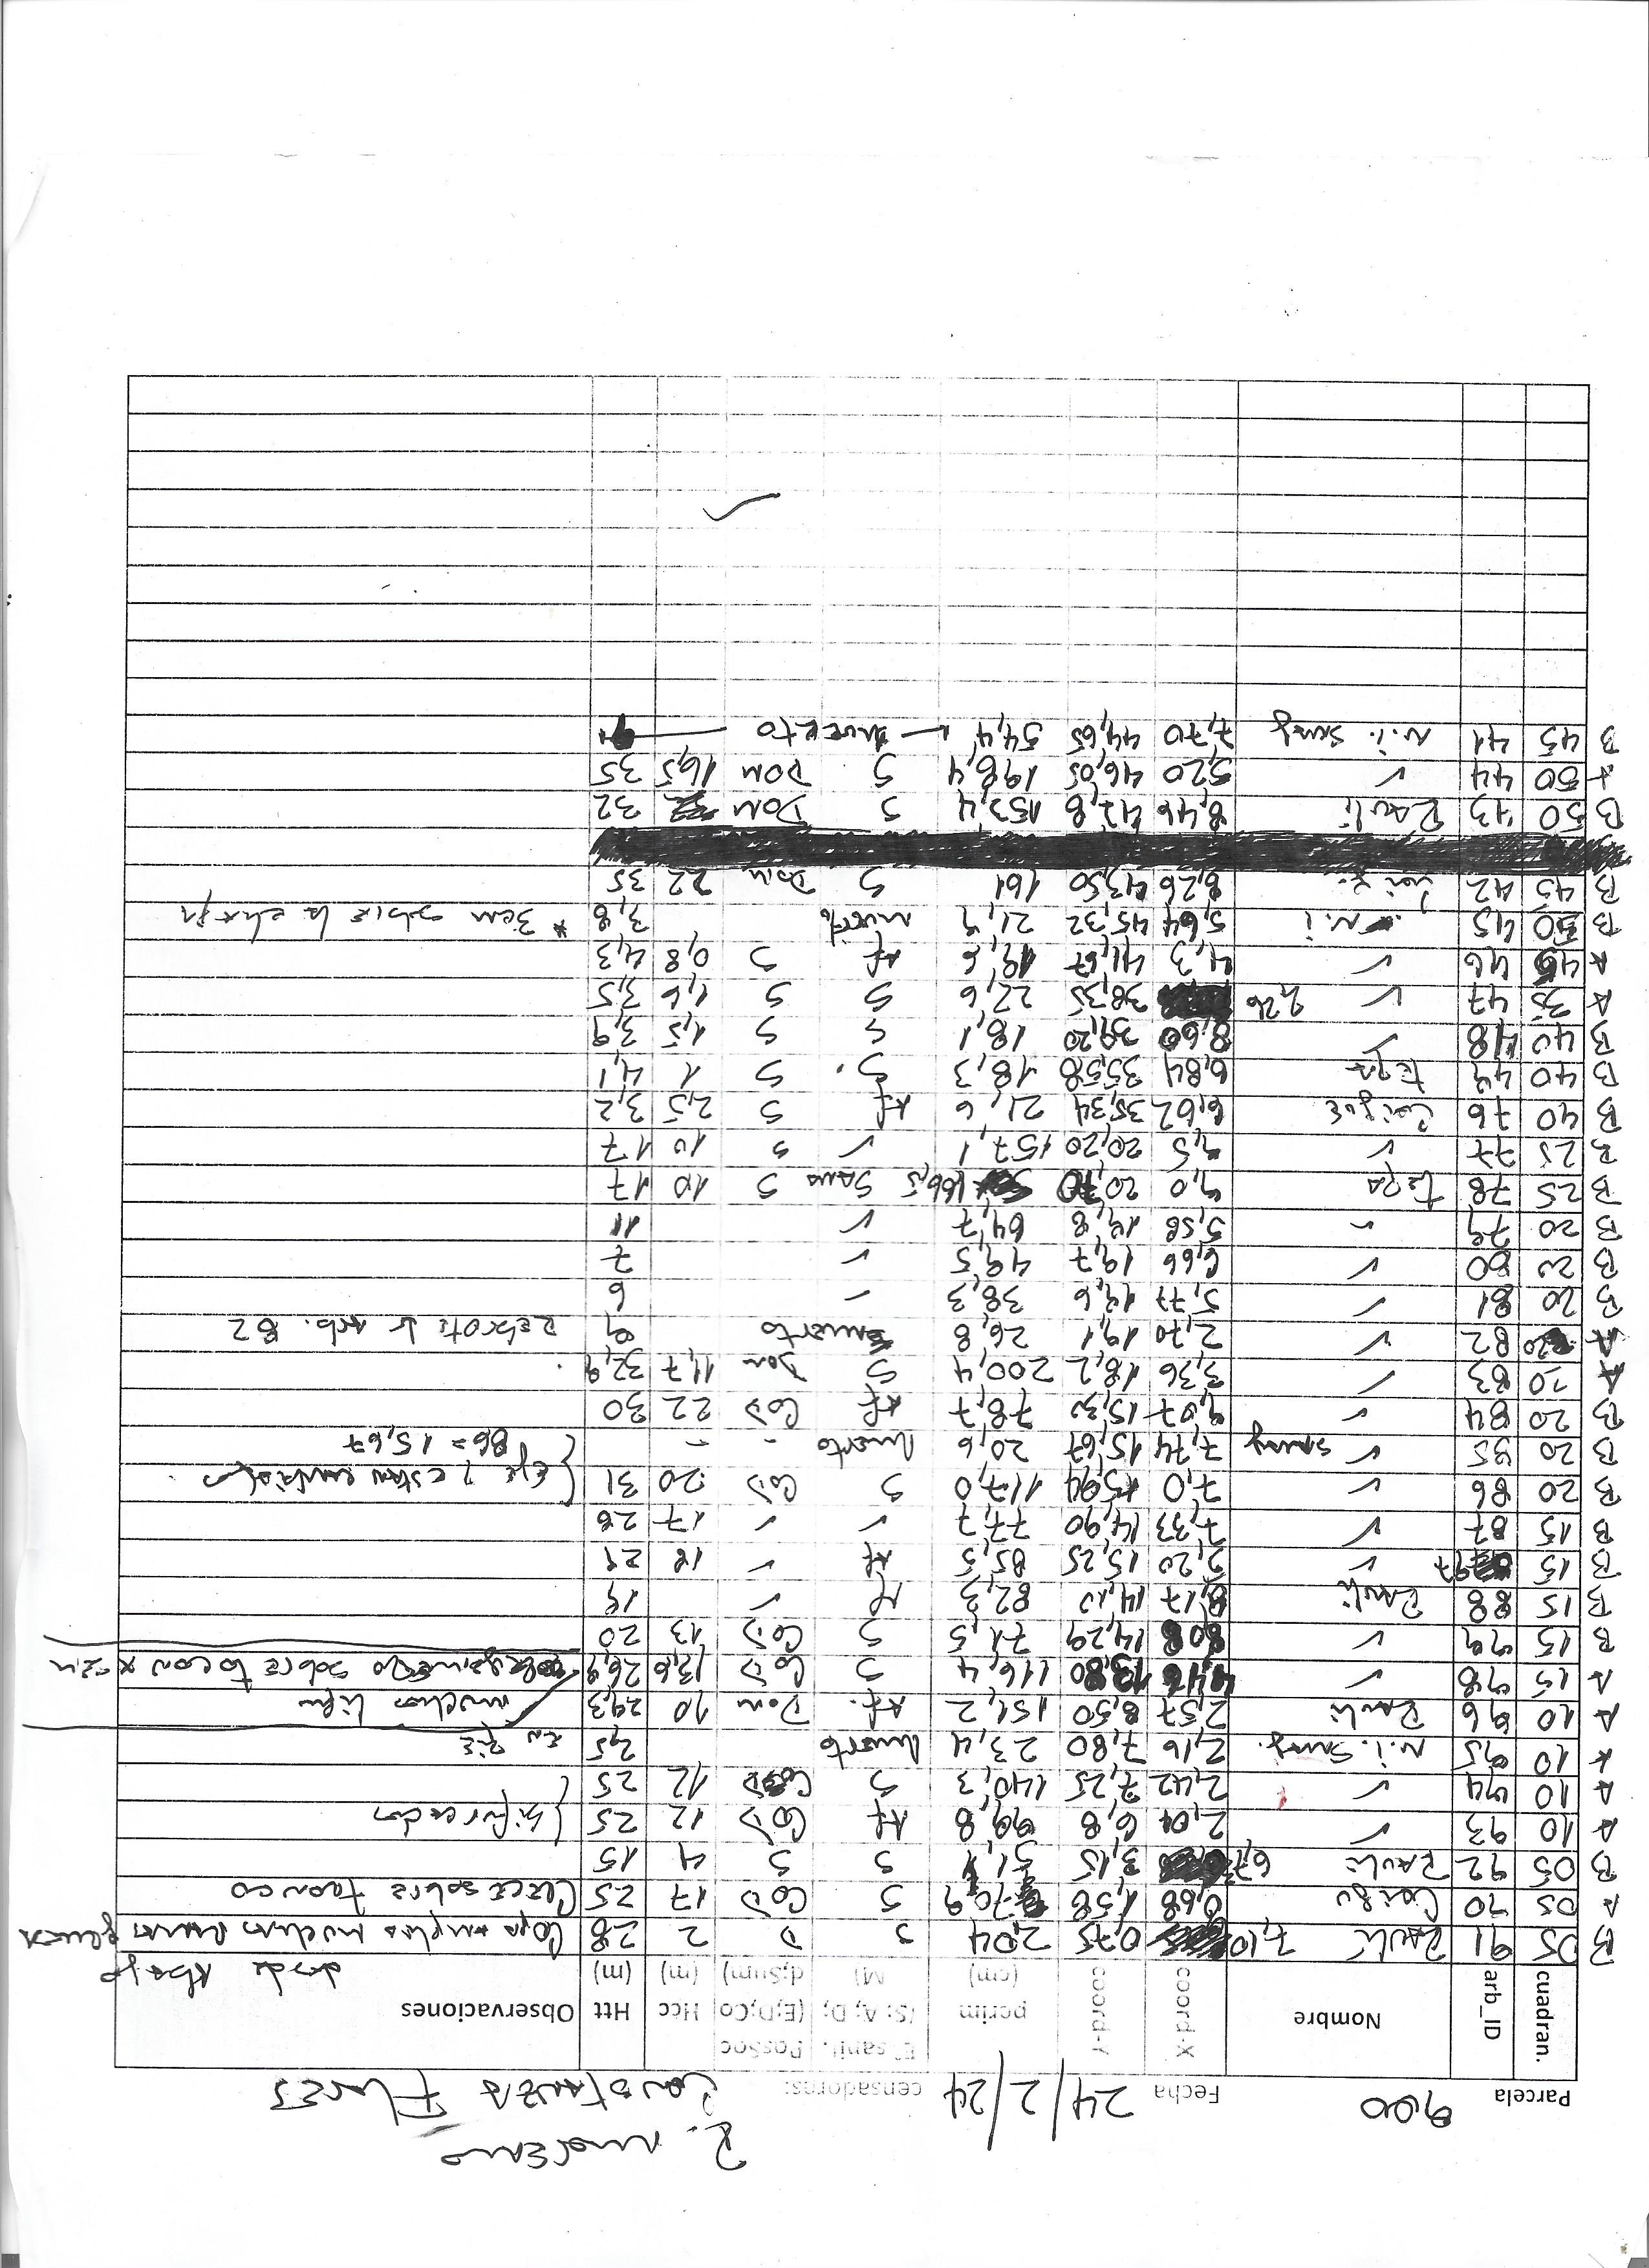 R. Moreno
Parcela 900 Fecha 24/2/24 censadores: Constanza Flores
cuadran. arb_ID Nombre coord-X coord-Y perim (cm) E° sanit. (S; A; D; M) PosSoc (E;D;Co d;Sum) Hcc (m) Htt (m) Observaciones
desde Abajo
B 05 91 Raulí 7,10 0,75 2,04 S D 2 28 Copa amplia muchas ramas gruesa
A 05 90 Coigu 0,68 1,58 70,9 S CoD 17 25 Crece sobre tronco
B 05 92 Raulí 3,15 51,1 S S 4 15
A 10 93 ✓ 2,04 6,8 99,8 Af CoD 12 25 bifurcados
A 10 94 ✓ 2,42 7,25 140,3 S CoD 12 25
A 10 95 N.I. Smag. 2,16 7,80 23,4 Muerto 2,5 en pie
A 10 96 Raulí 2,57 8,50 151,2 Af. Dom 10 29,3 muchos liqu
A 15 98 ✓ 4,46 13,80 116,4 S CoD 13,6 26,9 sobre tocon x
B 15 99 ✓ 8,08 14,29 71,5 S CoD 13 20
B 15 88 Raulí 8,17 14,10 82,3 M ✓ 19
B 15 97 ✓ 5,20 15,25 85,5 Af ✓ 18 29
B 15 87 ✓ 7,33 14,90 77,7 ✓ ✓ 17 28
B 20 86 ✓ 7,0 15,94 117,0 S CoD 20 31 Eje Y estan cambiados
B 20 85 ✓ smag 7,74 15,67 20,6 Muerto - - 86 = 15,67
B 20 84 ✓ 9,07 15,30 78,7 Af CoD 22 30
A 20 83 ✓ 3,36 18,2 200,4 S Dom 11,7 32,9
A 20 82 ✓ 2,70 19,1 26,8 Muerto 9 Rebrote ↓ Arb. 82
B 20 81 ✓ 5,77 19,6 38,3 ✓ 6
B 20 80 ✓ 6,66 19,7 49,5 ✓ 7
B 20 79 ✓ 5,58 19,8 64,7 ✓ 11
B 25 78 Tepa 9,0 20,70 166,5 Sana S 10 17
B 25 77 ✓ 9,5 20,20 157,1 ✓ S 10 17
B 40 76 Coigue 6,62 35,34 21,6 Af S 2,5 3,2
B 40 49 Tepa 6,84 35,58 18,3 S. S 1 4,1
B 40 48 ✓ 8,60 39,20 18,1 S S 1,5 3,9
A 35 47 ✓ 2,26 38,35 22,6 S S 1,6 3,5
A 45 46 ✓ 4,3 41,67 19,6 Af S 0,8 4,3
B 50 45 N.I 5,64 45,32 21,9 Muerto 3,8 * 3cm sobre la chapa
B 45 42 Coig. 8,26 43,50 161 S Dom. 22 35
B 50 43 Raulí 8,46 47,8 153,4 S DOM 32
A 50 44 ✓ 5,20 46,05 198,4 S DOM 16,5 35
B 45 41 N.I. smag 7,70 44,65 54,4 MUERTO 9